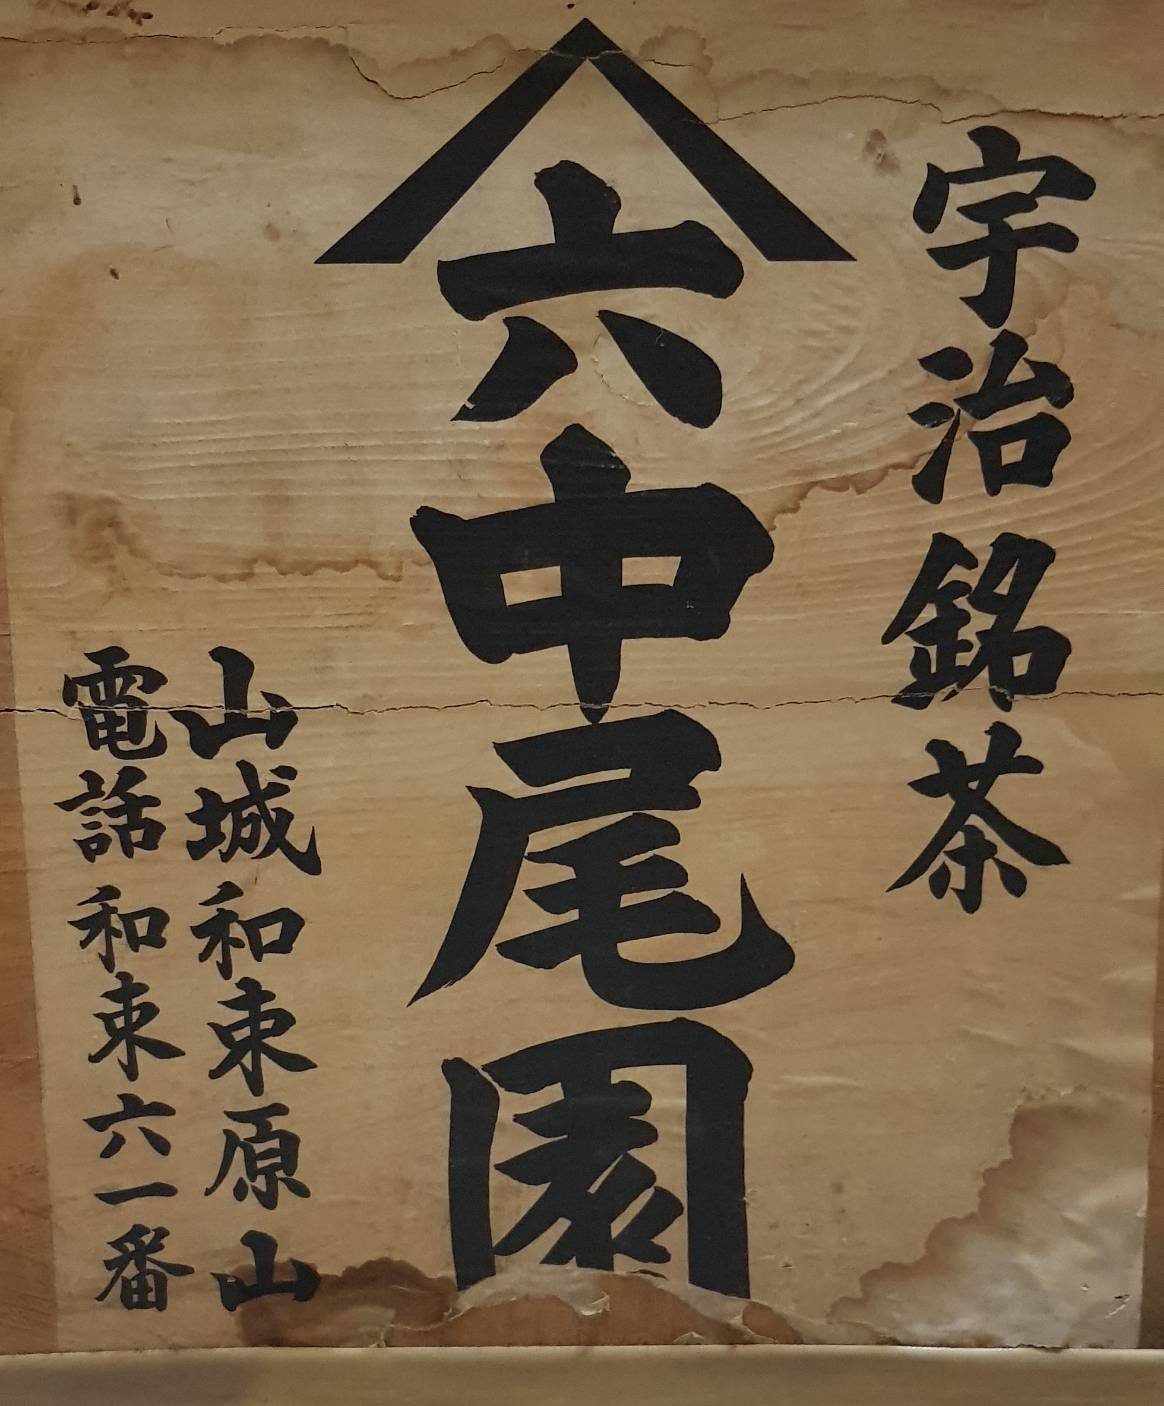 宇治銘茶
六中尾園
山城和束原山
電話和束六一番